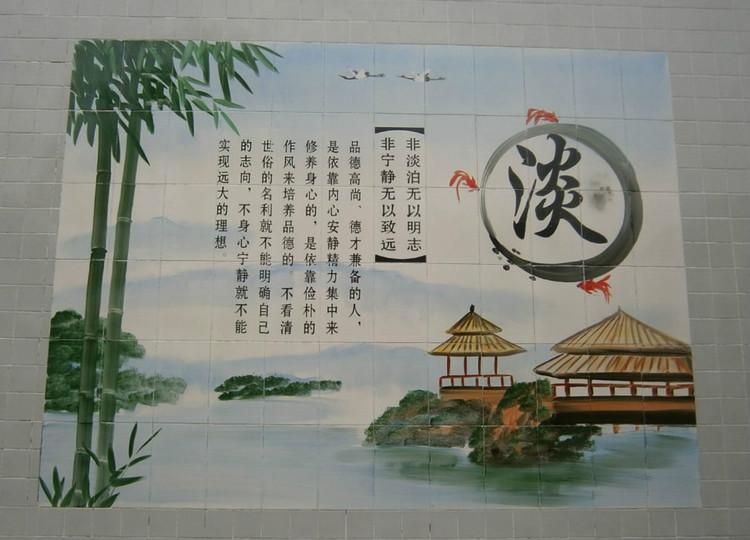 淡
非淡泊无以明志
非宁静无以致远
品德高尚、德才兼备的人，
是依靠内心安静精力集中来
修养身心的，是依靠俭朴的
作风来培养品德的。不看清
世俗的名利就不能明确自己
的志向，不身心宁静就不能
实现远大的理想。